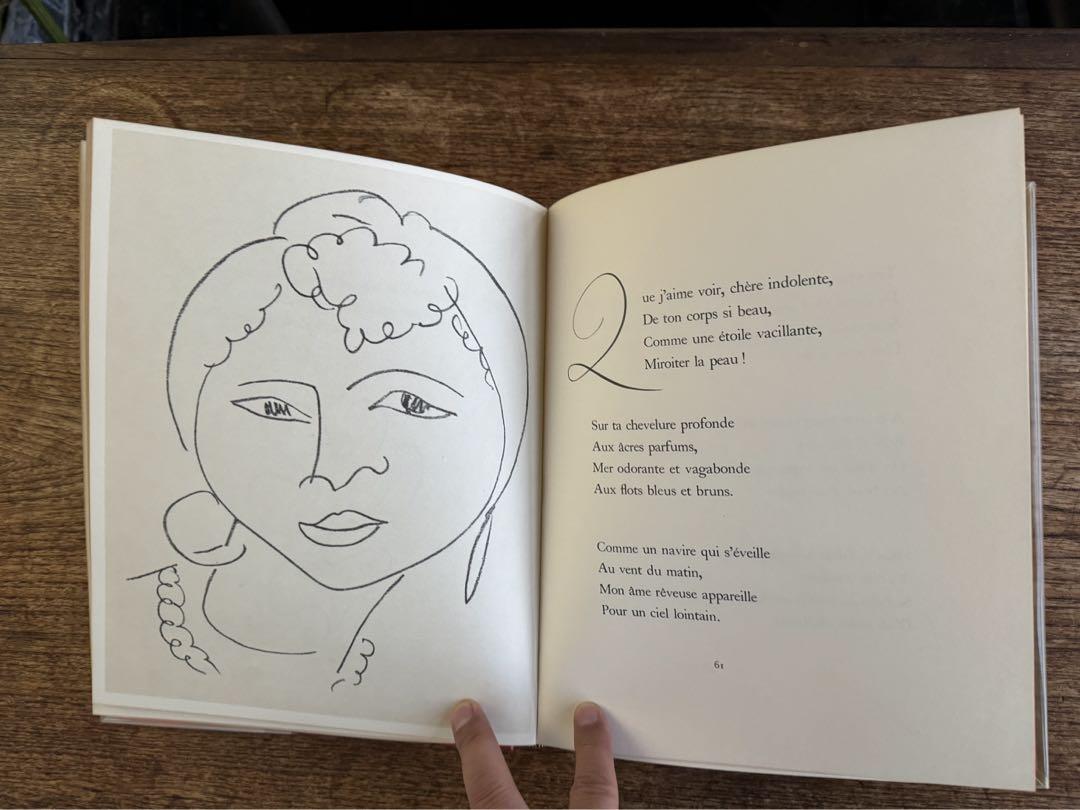 Que j'aime voir, chère indolente,
De ton corps si beau,
Comme une étoile vacillante,
Miroiter la peau !
Sur ta chevelure profonde
Aux âcres parfums,
Mer odorante et vagabonde
Aux flots bleus et bruns.
Comme un navire qui s'éveille
Au vent du matin,
Mon âme rêveuse appareille
Pour un ciel lointain.
61